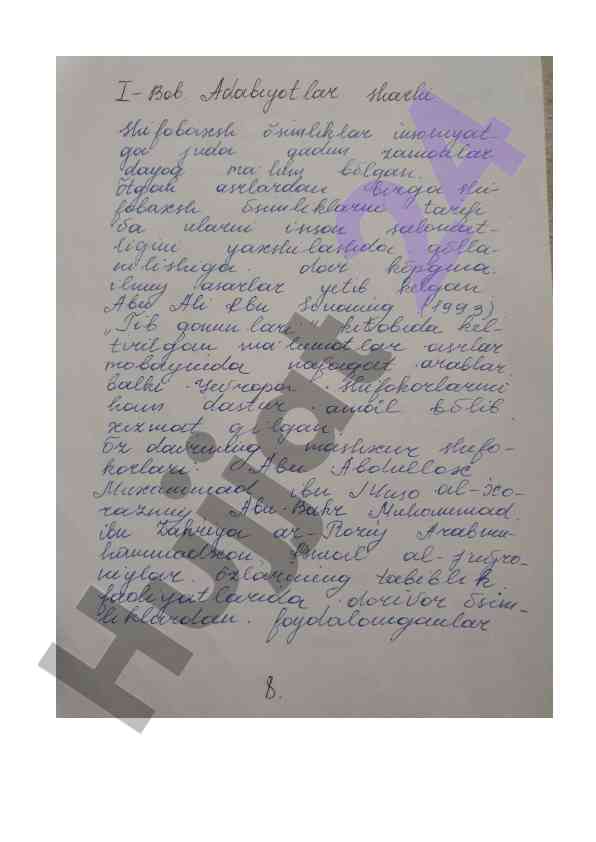 I-Bob. Adabiyotlar sharhi
Shifobaxsh õsimliklar insoniyat-
ga juda qadim zamonlar
dayoq ma'lum bõlgan.
Õtgan asrlardan bizga shi-
fobaxsh õsimliklarni tarifi
va ularni inson salomat-
ligini yaxshilashda qõlla-
nilishiga doir kõpgina
ilmiy asarlar yetib kelgan
Abu Ali Ibn Sinoning (1993)
„Tib qonunlari" kitobida kel-
tirilgan ma'lumotlar asrlar
mobaynida nafaqat arablar
balki Yevropa shifokorlarini
ham dastur amal bõlib
xizmat qilgan.
Õz davrining mashxur shifo-
korlari: Abu Abdullox
Muxammad ibn Muso al-xo-
razmiy Abu-Bakr Muhammad
ibn Zakriya ar-Roziy
Ismoil al-
niylar õzlarining tabiblik
faoliyatlarida dorivor õsim-
liklardan foydalanganlar
8.
Hujjat 24